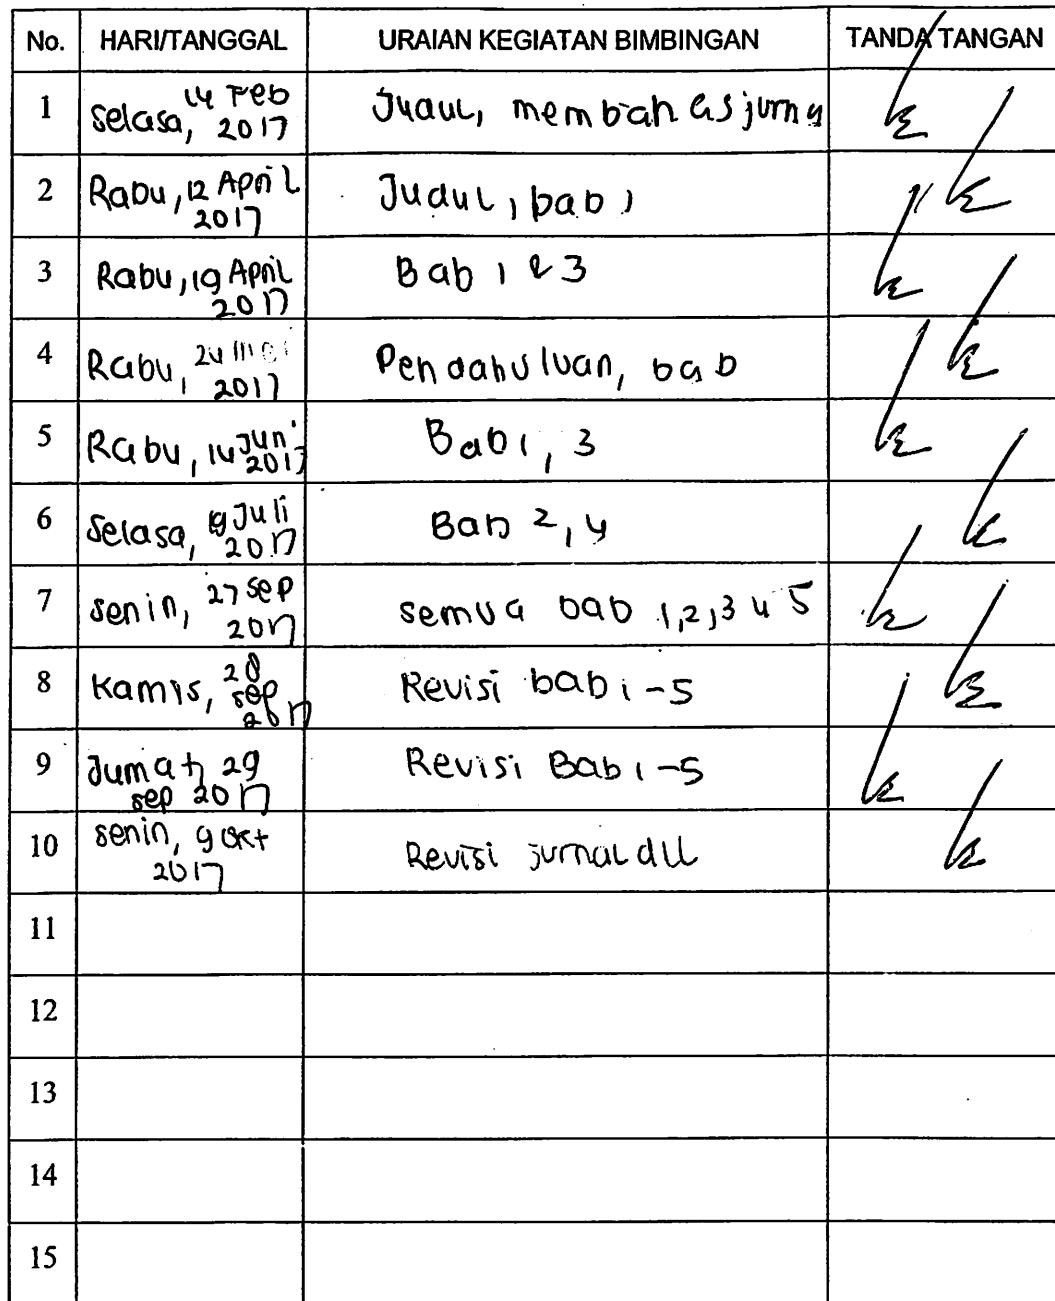 No. HARI/TANGGAL URAIAN KEGIATAN BIMBINGAN TANDA TANGAN
1 Selasa, 14 Feb 2017 Judul, membahas jurna
2 Rabu, 12 April 2017 Judul, bab 1
3 Rabu, 19 April 2017 Bab 1 & 3
4 Rabu, 24 mei 2017 Pendahuluan, bab
5 Rabu, 14 Juni 2017 Bab 1, 3
6 Selasa, Juli 2017 Bab 2, 4
7 Senin, 27 Sep 2017 semua bab 1,2,3 4 5
8 Kamis, 28 sep 2017 Revisi bab 1-5
9 Jumat, 29 sep 2017 Revisi Bab 1-5
10 senin, 9 Okt 2017 Revisi jurnal dll
11
12
13
14
15